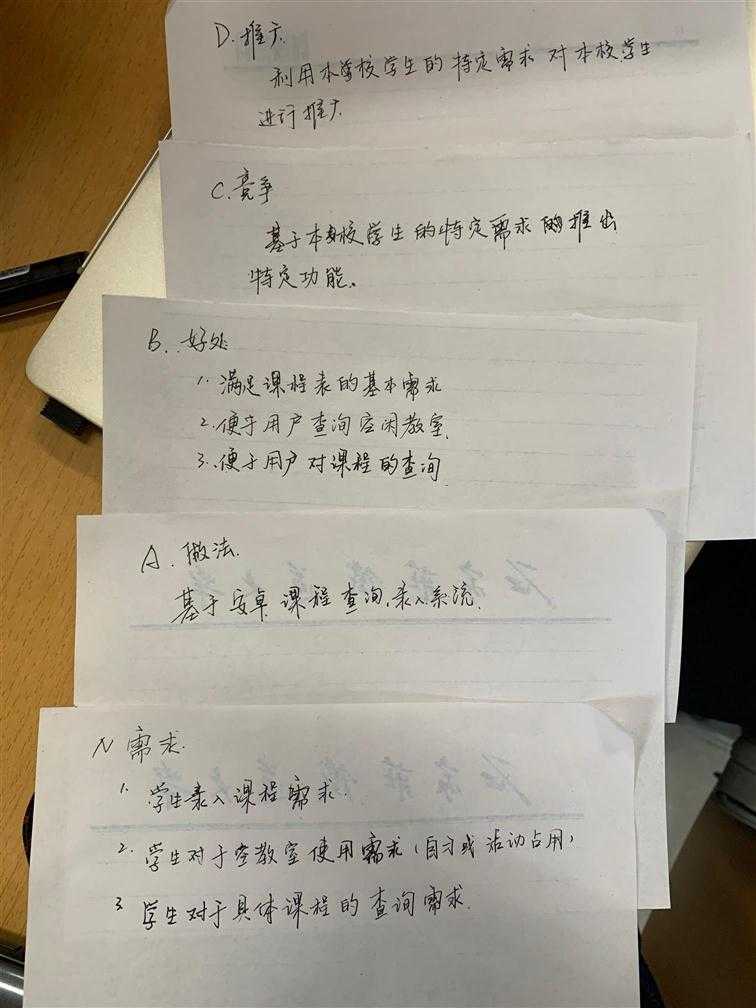 D. 推广
利用本学校学生的特定需求对本校学生
进行推广
C. 竞争
基于本校学生的特定需求的推出
特定功能。
B. 好处
1. 满足课程表的基本需求
2. 便于用户查询空闲教室.
3. 便于用户对课程的查询
A. 做法.
基于安卓课程查询,录入系统.
N 需求.
1. 学生录入课程需求.
2. 学生对于空教室使用需求(自习或活动占用)
3 学生对于具体课程的查询需求.